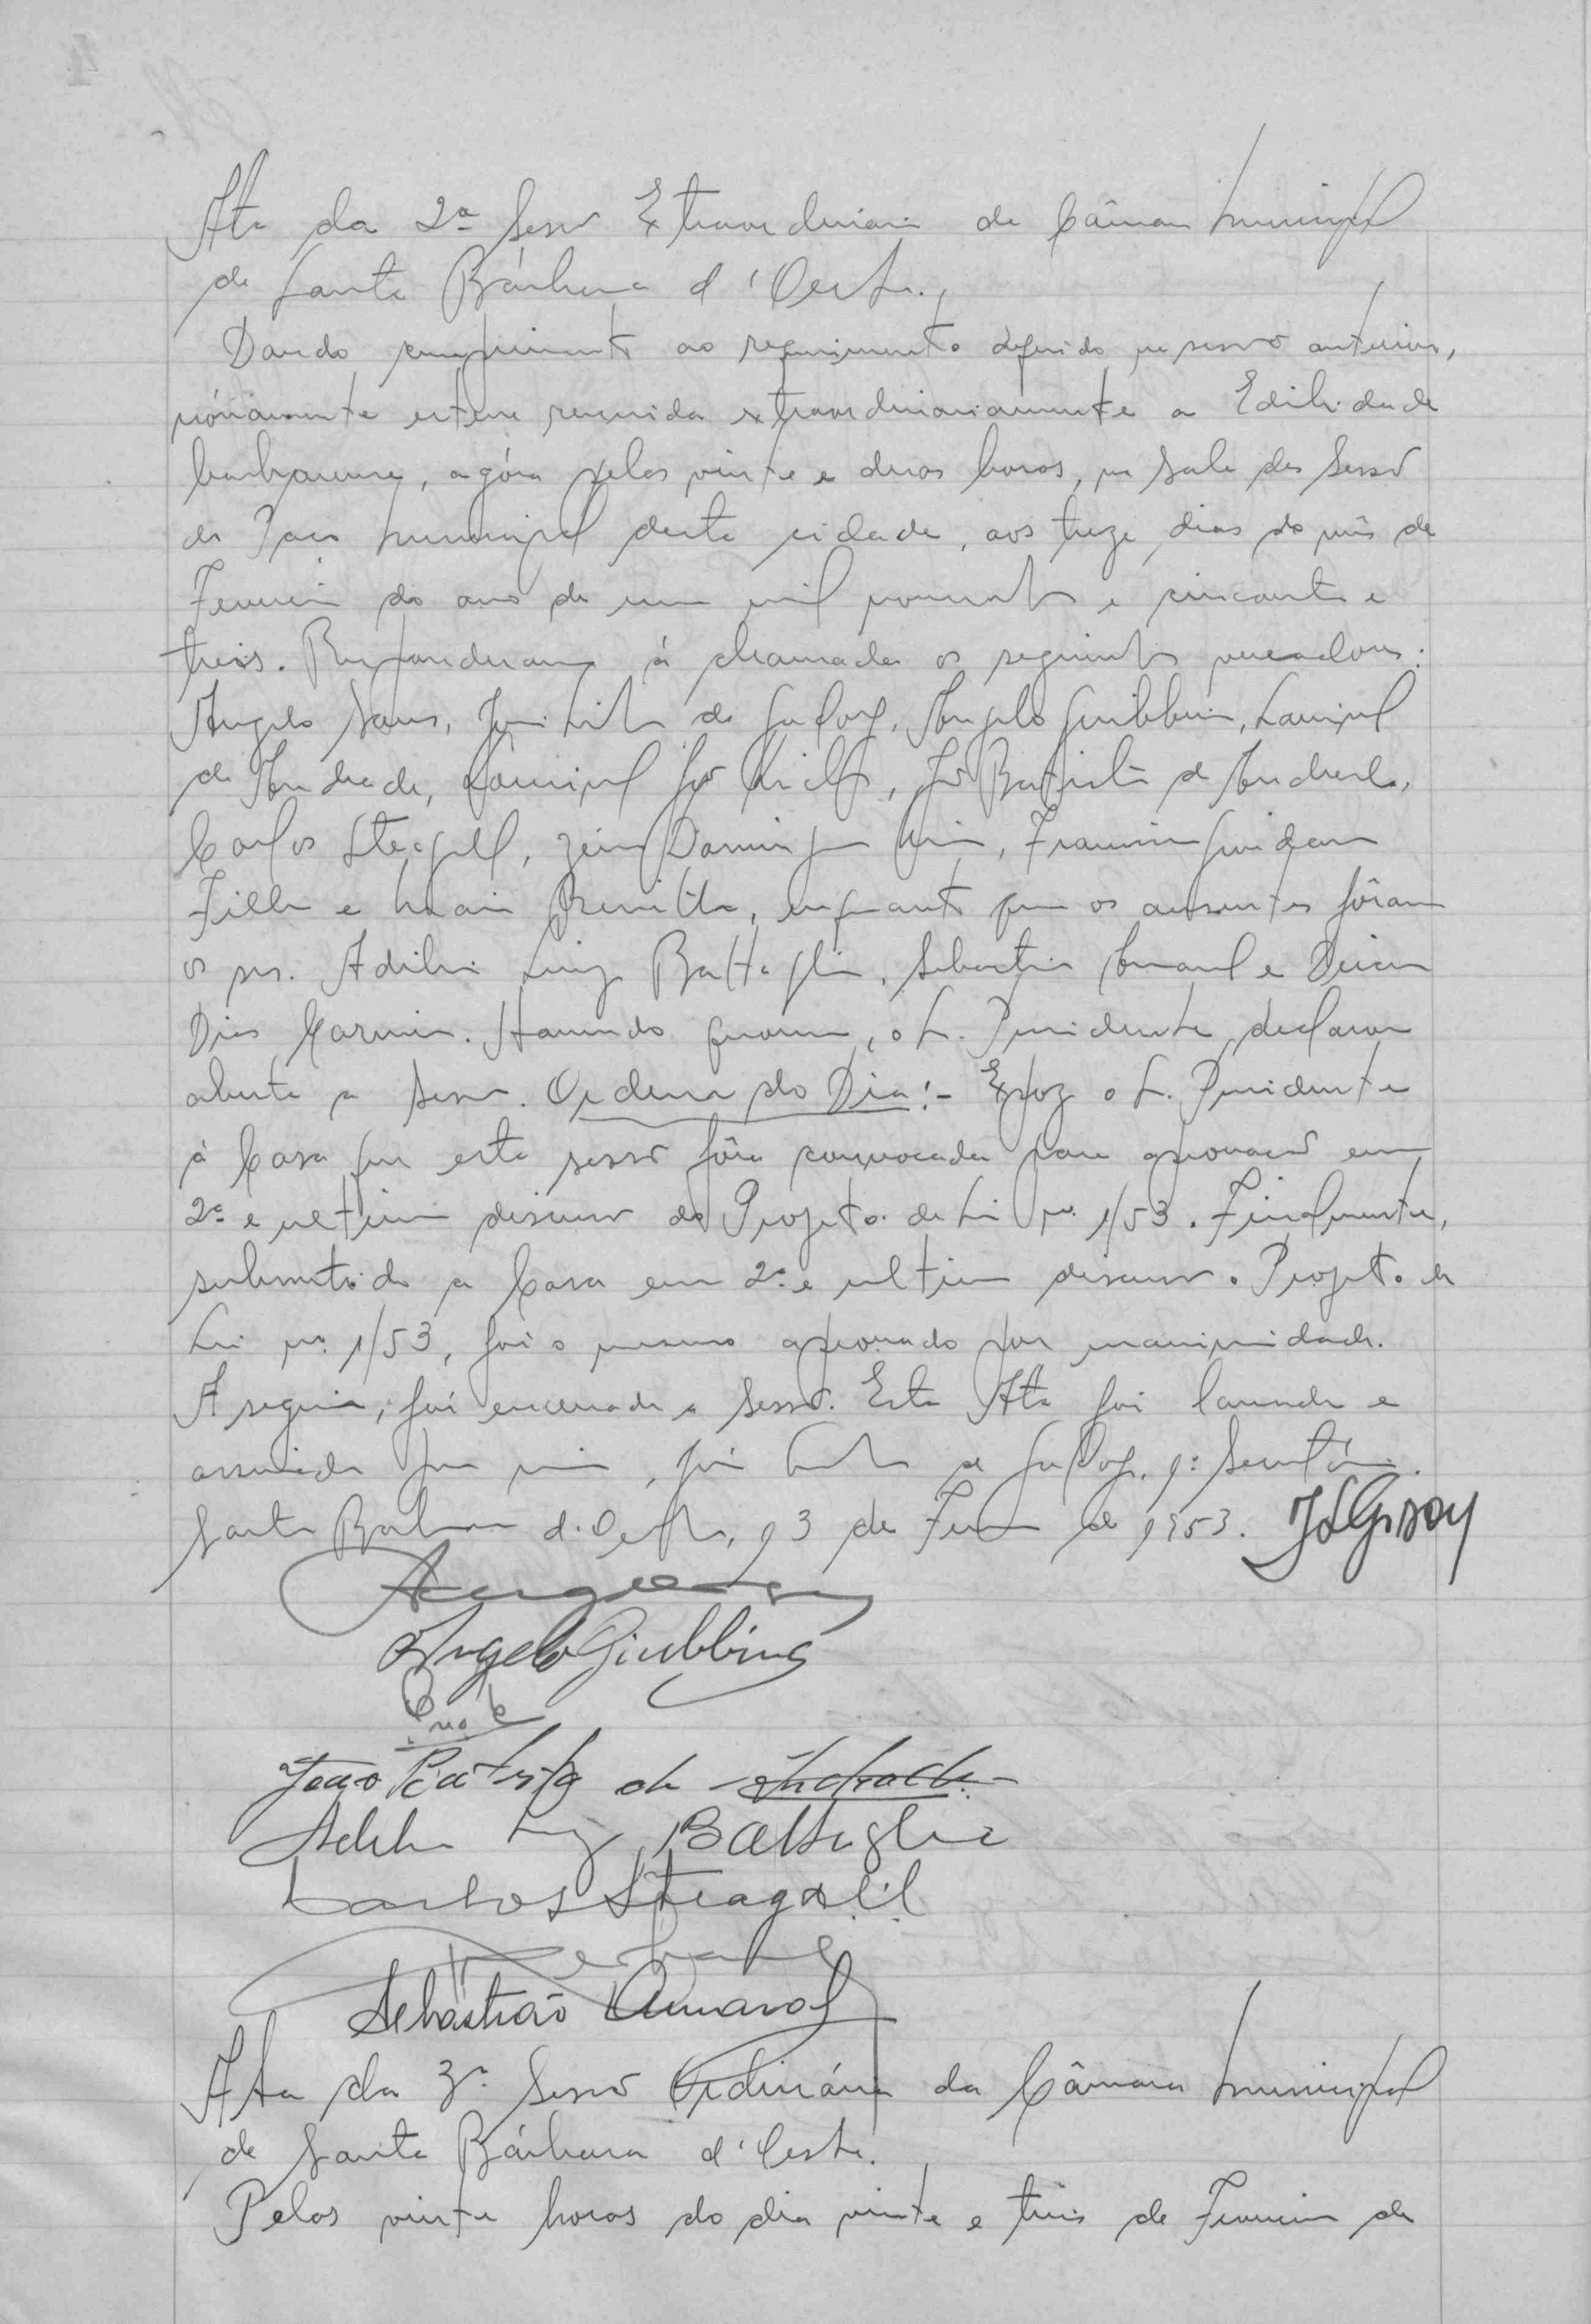 Ata da 2ª Sessão Extraordinária da Câmara Municipal
de Santa Bárbara d'Oeste.
Dando cumprimento ao requerimento deferido na sessão anterior,
novamente esteve reunida extraordinariamente a Edilidade
barbarense, agóra pelas vinte e duas horas, na Sala das Sessões
do Paço Municipal desta cidade, aos treze dias do mês de
Fevereiro do ano de um mil novecentos e cincoenta e
treis. Responderam á chamada os seguintes vereadores:
Angelo Sans, de Godoy, Angelo Giubbina, Laurival
de Andrade, Lourival João Batista de Andrade,
Carlos Steagall, Domingos Francisco
Filho e enquanto que os ausentes fôram
os srs. Adilio Luiz Battaglia, Sebastião Amaral e
Dias Havendo quorum, o Sr. Presidente declarou
aberta a Sessão. Ordem do Dia:- Expoz o Sr. Presidente
á Casa que esta sessão fôra convocada para aprovação em
2ª e ultima discussão do Projeto de Lei nº 1/53. Finalmente,
submetido a Casa em 2ª e ultima discussão o Projeto de
Lei nº 1/53, foi o mesmo aprovado por unanimidade.
A seguir, foi encerrada a Sessão. Esta Ata foi lavrada e
assinada por mim, de Godoy, 1º Secretário.
Santa Barbara d'Oeste, 13 de Fevereiro de 1953.
Angelo Giubbina
João Batista de Andrade
Adilio Luiz Battaglia
Carlos Steagall
Sebastião Amaral
Ata da 3ª Sessão Ordinária da Câmara Municipal
de Santa Bárbara d'Oeste.
Pelas vinte horas do dia vinte e três de Fevereiro de